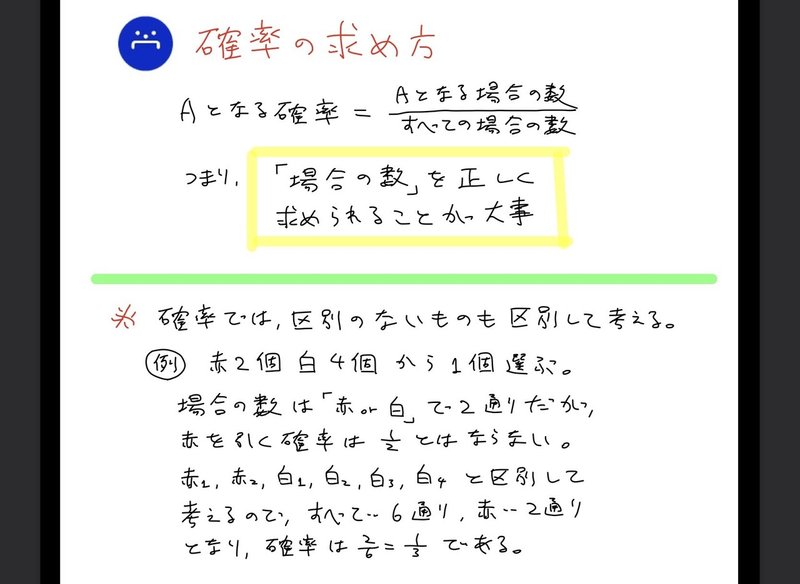 確率の求め方
Aとなる確率 = Aとなる場合の数/すべての場合の数
つまり、「場合の数」を正しく
求められることが大事
※ 確率では、区別のないものも区別して考える。
例 赤2個 白4個 から 1個 選ぶ。
場合の数は「赤 or 白」で2通りだが、
赤を引く確率は 1/2 とはならない。
赤1, 赤2, 白1, 白2, 白3, 白4 と区別して
考えるので、すべて…6通り、赤…2通り
となり、確率は 2/6 = 1/3 である。